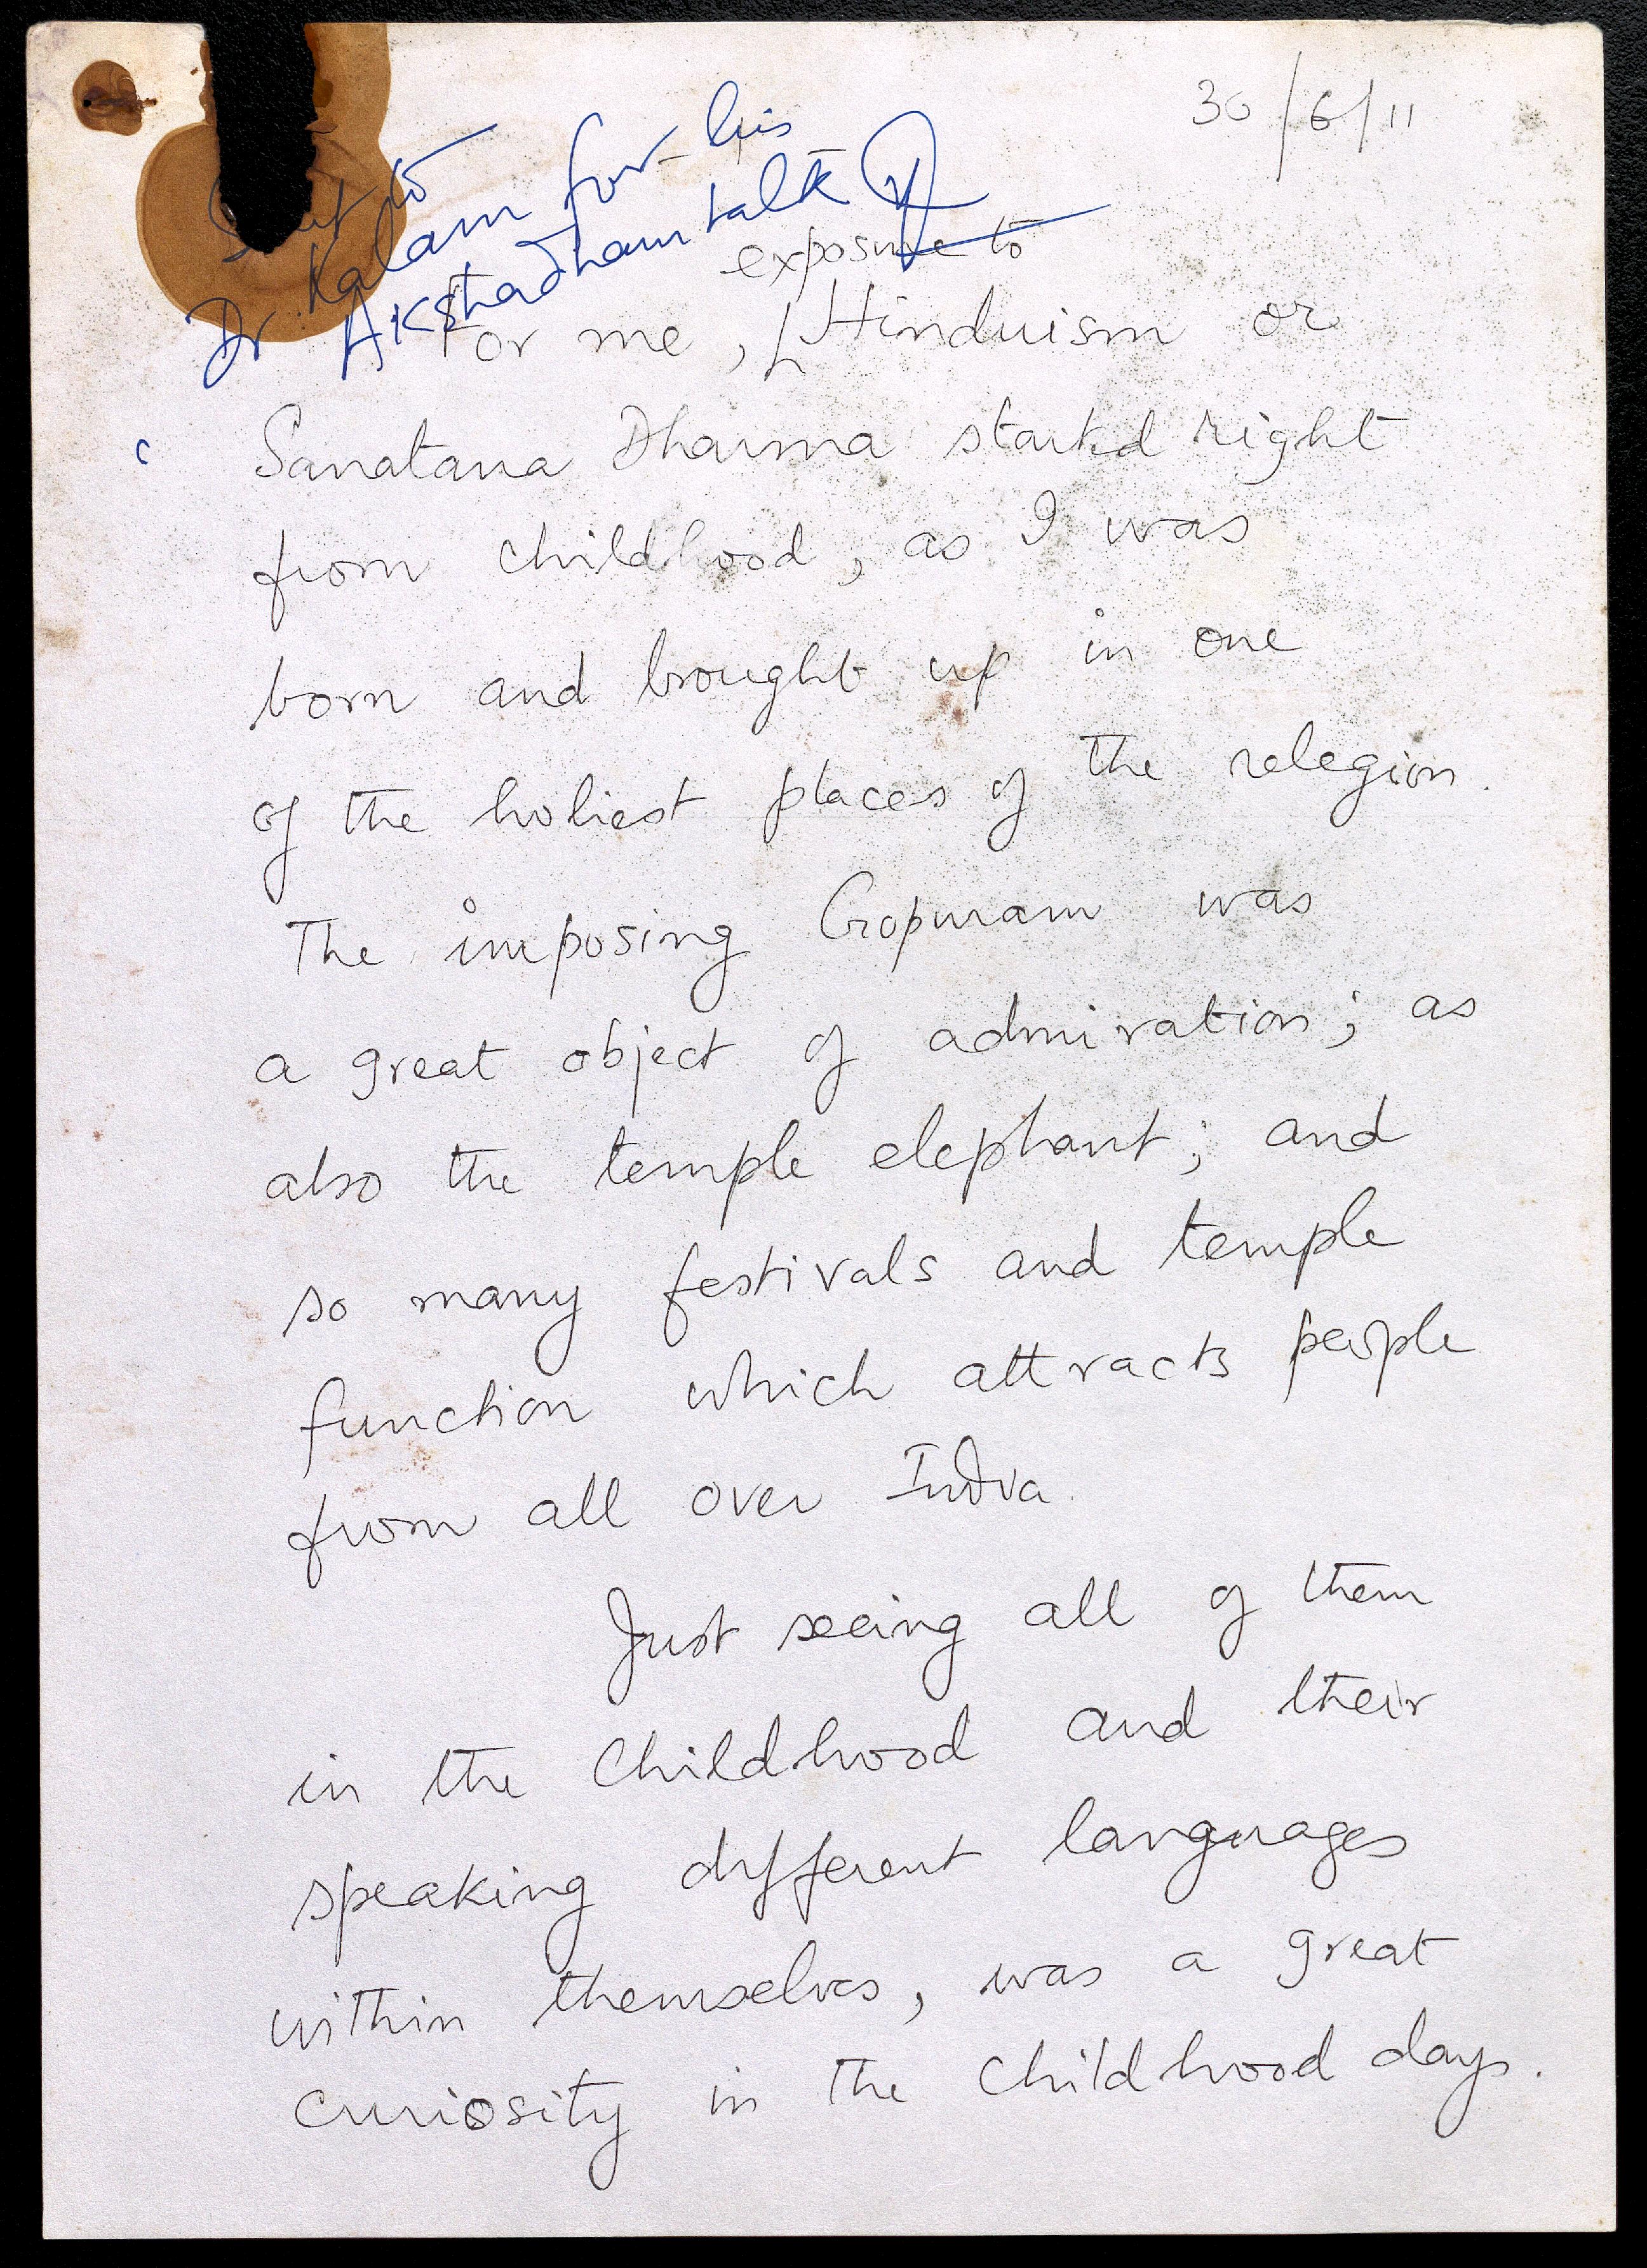 30/6/11
Sent to
Dr. Kalam for his
Akshadham talk
exposure to
For me, Hinduism or
Sanatana Dharma started right
from childhood, as I was
born and brought up in one
of the holiest places of the relegion.
The imposing Gopuram was
a great object of admiration; as
also the temple elephant; and
so many festivals and temple
function which attracts people
from all over India.
Just seeing all of them
in the Childhood and their
speaking different languages
within themselves, was a great
curiosity in the Childhood days.